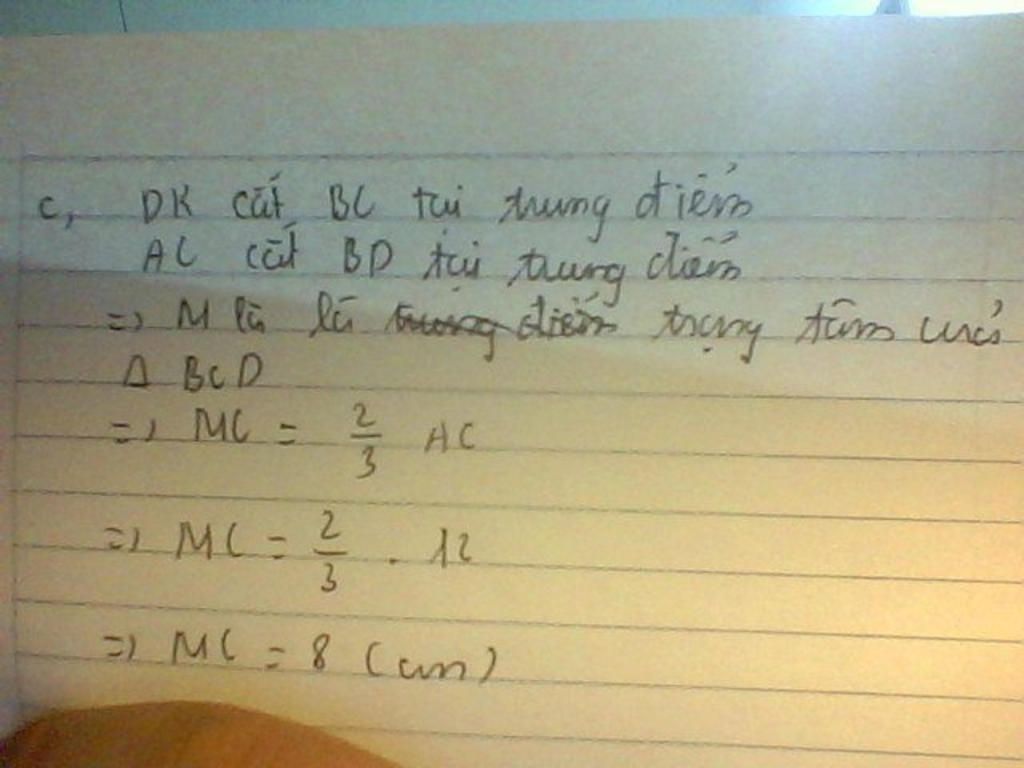 c, DK cắt BC tại trung điểm
AC cắt BD tại trung điểm
=> M là là trung điểm trọng tâm của
Δ BCD
=> MC = 2/3 AC
=> MC = 2/3 . 12
=> MC = 8 (cm)